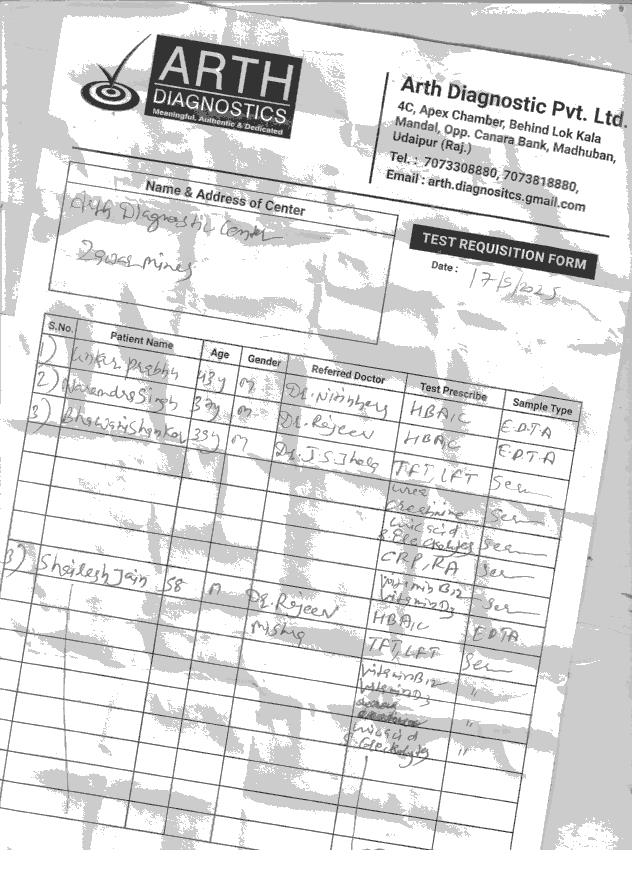 ARTH
DIAGNOSTICS
Meaningful, Authentic & Dedicated
Arth Diagnostic Pvt. Ltd.
4C, Apex Chamber, Behind Lok Kala
Mandal, Opp. Canara Bank, Madhuban,
Udaipur (Raj.)
Tel. : 7073308880, 7073818880,
Email : arth.diagnositcs.gmail.com
Name & Address of Center
Arth Diagnostic Center
Zawar mines
TEST REQUISITION FORM
Date : 17/5/2025
S.No. Patient Name Age Gender Referred Doctor Test Prescribe Sample Type
1) Prabhu 43y m Dr. HBA1C E.D.T.A
2) Narendra Singh 37y m Dr. Rajeen HBA1C E.D.T.A
3) Bhawani Shankar 39y m Dr. J.S. TFT, LFT Ser
urea
creatinine Ser
uric acid
& Electrolytes Ser
CRP, RA Ser
vitamin B12
vitamin D3 Ser
3) Shailesh Jain 58 Dr. Rajeen HBA1C EDTA
TFT, LFT Ser
vitamin B12
vitamin D3 "
"
uric acid
& Electrolytes "